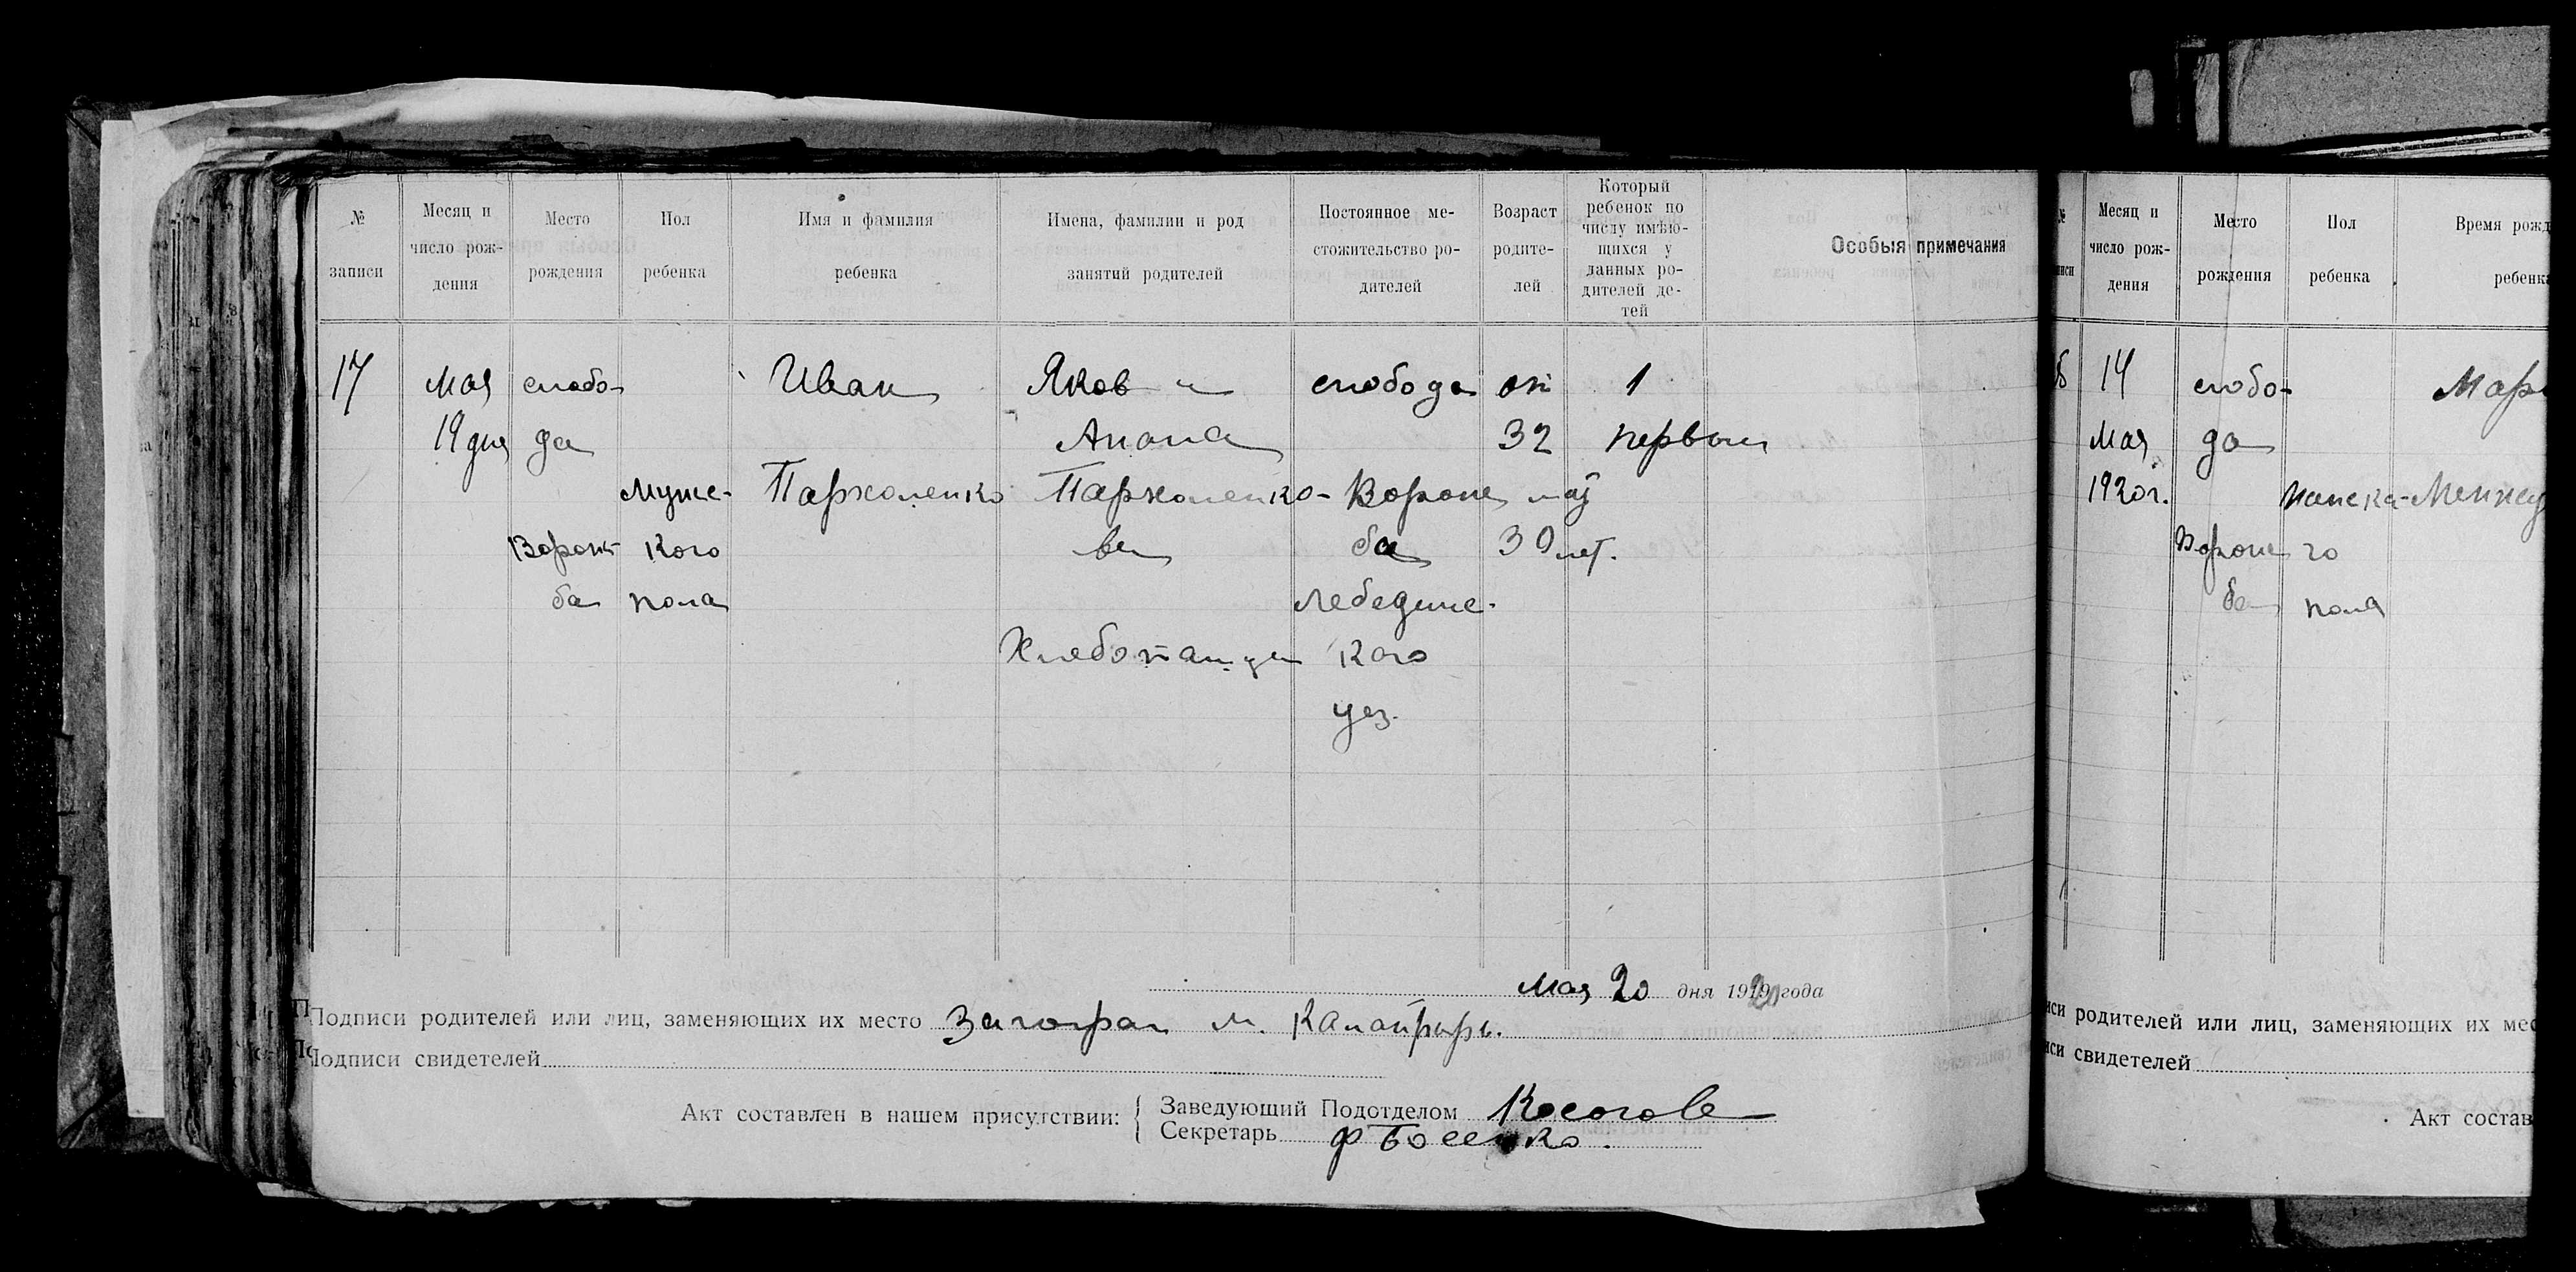 № записи
Месяц и число рождения
Место рождения
Пол ребенка
Имя и фамилия ребенка
Имена, фамилии и род занятий родителей
Постоянное местожительство родителей
Возраст родителей
Который ребенок по числу имѣющихся у данных родителей детей
Особыя примечания
17
Мая
19 дня
слобо-
да
Ворож-
ба
Мужс-
кого
пола
Иван
Пархоменко
Яков и
Пархоменко-
вы
Хлебопашцы
слобода
Ворож
ба
Лебединс-
кого
уез.
он
32
30 лет.
1
первый
Мая 20 дня 1920 года
Подписи родителей или лиц, заменяющих их место
Подписи свидетелей
Акт составлен в нашем присутствии:
Заведующий Подотделом
Секретарь
Месяц и
число рож-
дения
Место
рождения
Пол
ребенка
Время рожд
ребенк
14
Мая
1920 г.
слобо-
да
Ворож
ба
женска-
го
пола
Мар
родителей или лиц, заменяющих их мес
свидетелей
Акт состав